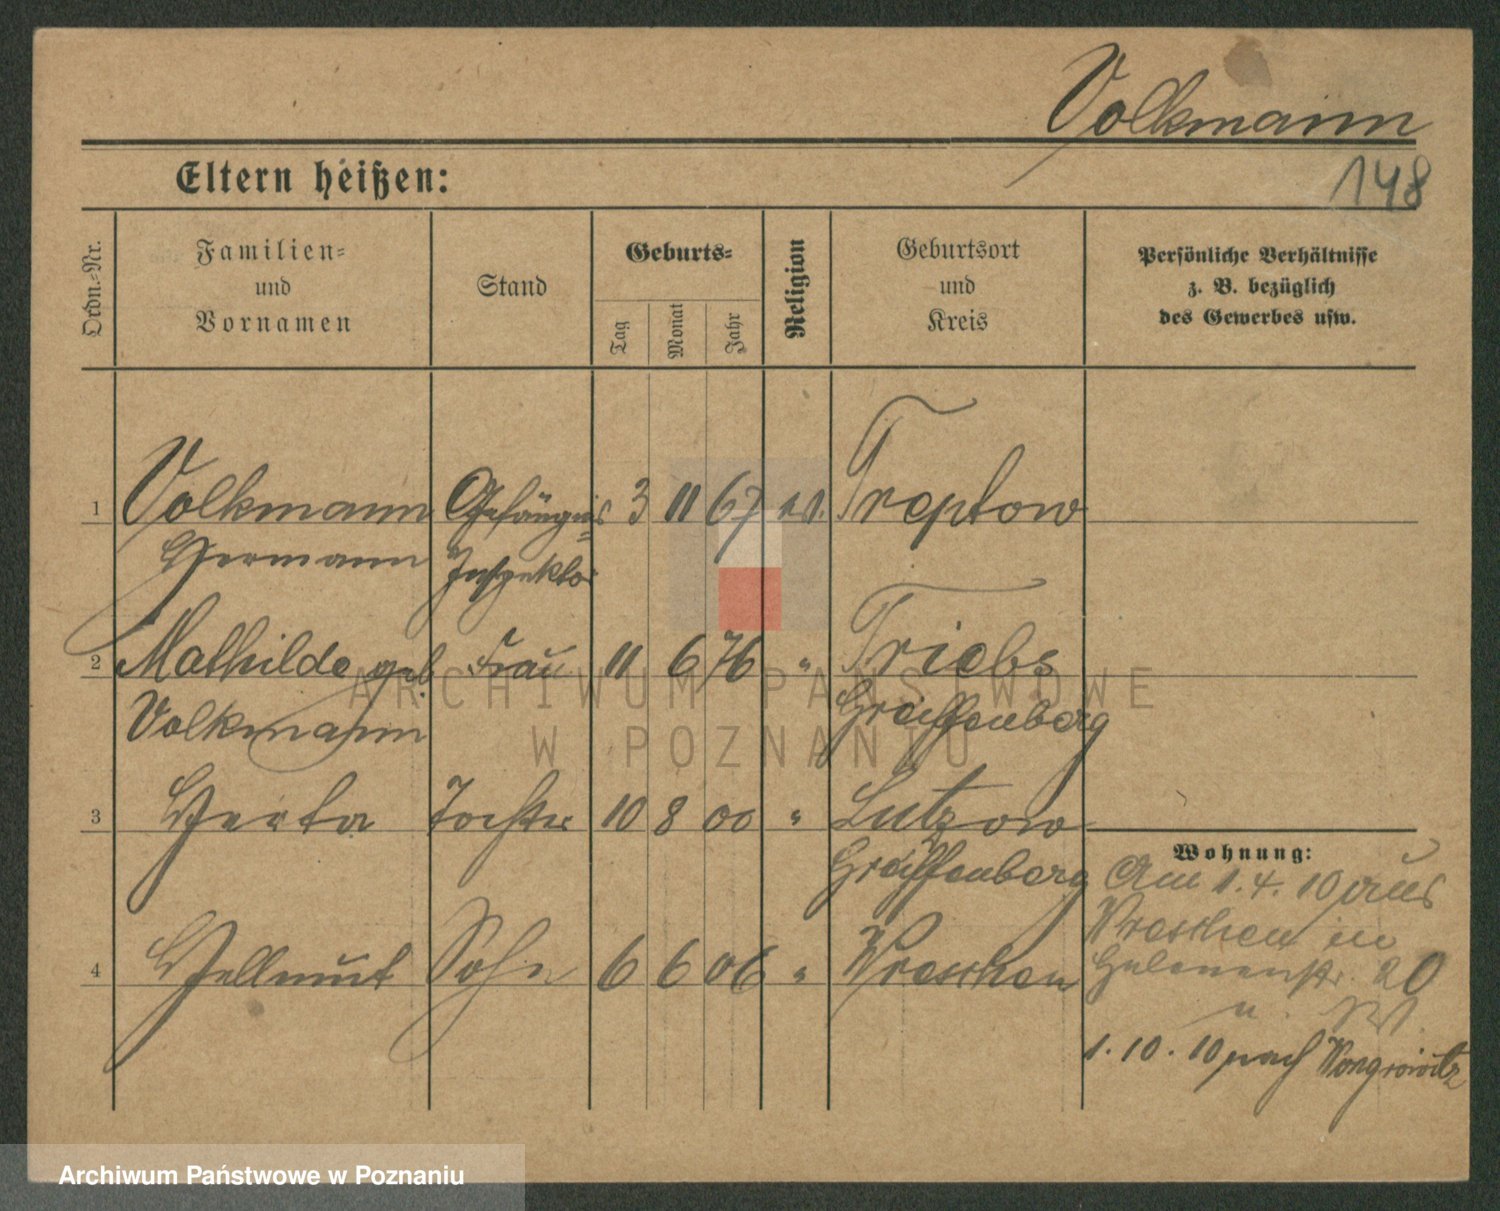 Volkmann
148
Eltern heißen:
Ordn.-Nr.
Familien-
und
Vornamen
Stand
Geburts-
Tag
Monat
Jahr
Religion
Geburtsort
und
Kreis
Persönliche Verhältnisse
z. B. bezüglich
des Gewerbes usw.
1 Volkmann Gefängnis 3 11 67 ev. Treptow
Hermann Inspektor
2 Mathilde geb Frau 11 6 76 " Triebs
Volkmann Greiffenberg
3 Herta Tochter 10 8 00 " Lutzow
Greiffenberg
Wohnung:
Am 1. 4. 10 aus
Wreschen in
4 Hellmut Sohn 6 6 06 " Wreschen
Helenenstr. 20
1. 10. 10 nach Wongrowitz
ARCHIWUM PAŃSTWOWE
W POZNANIU
Archiwum Państwowe w Poznaniu